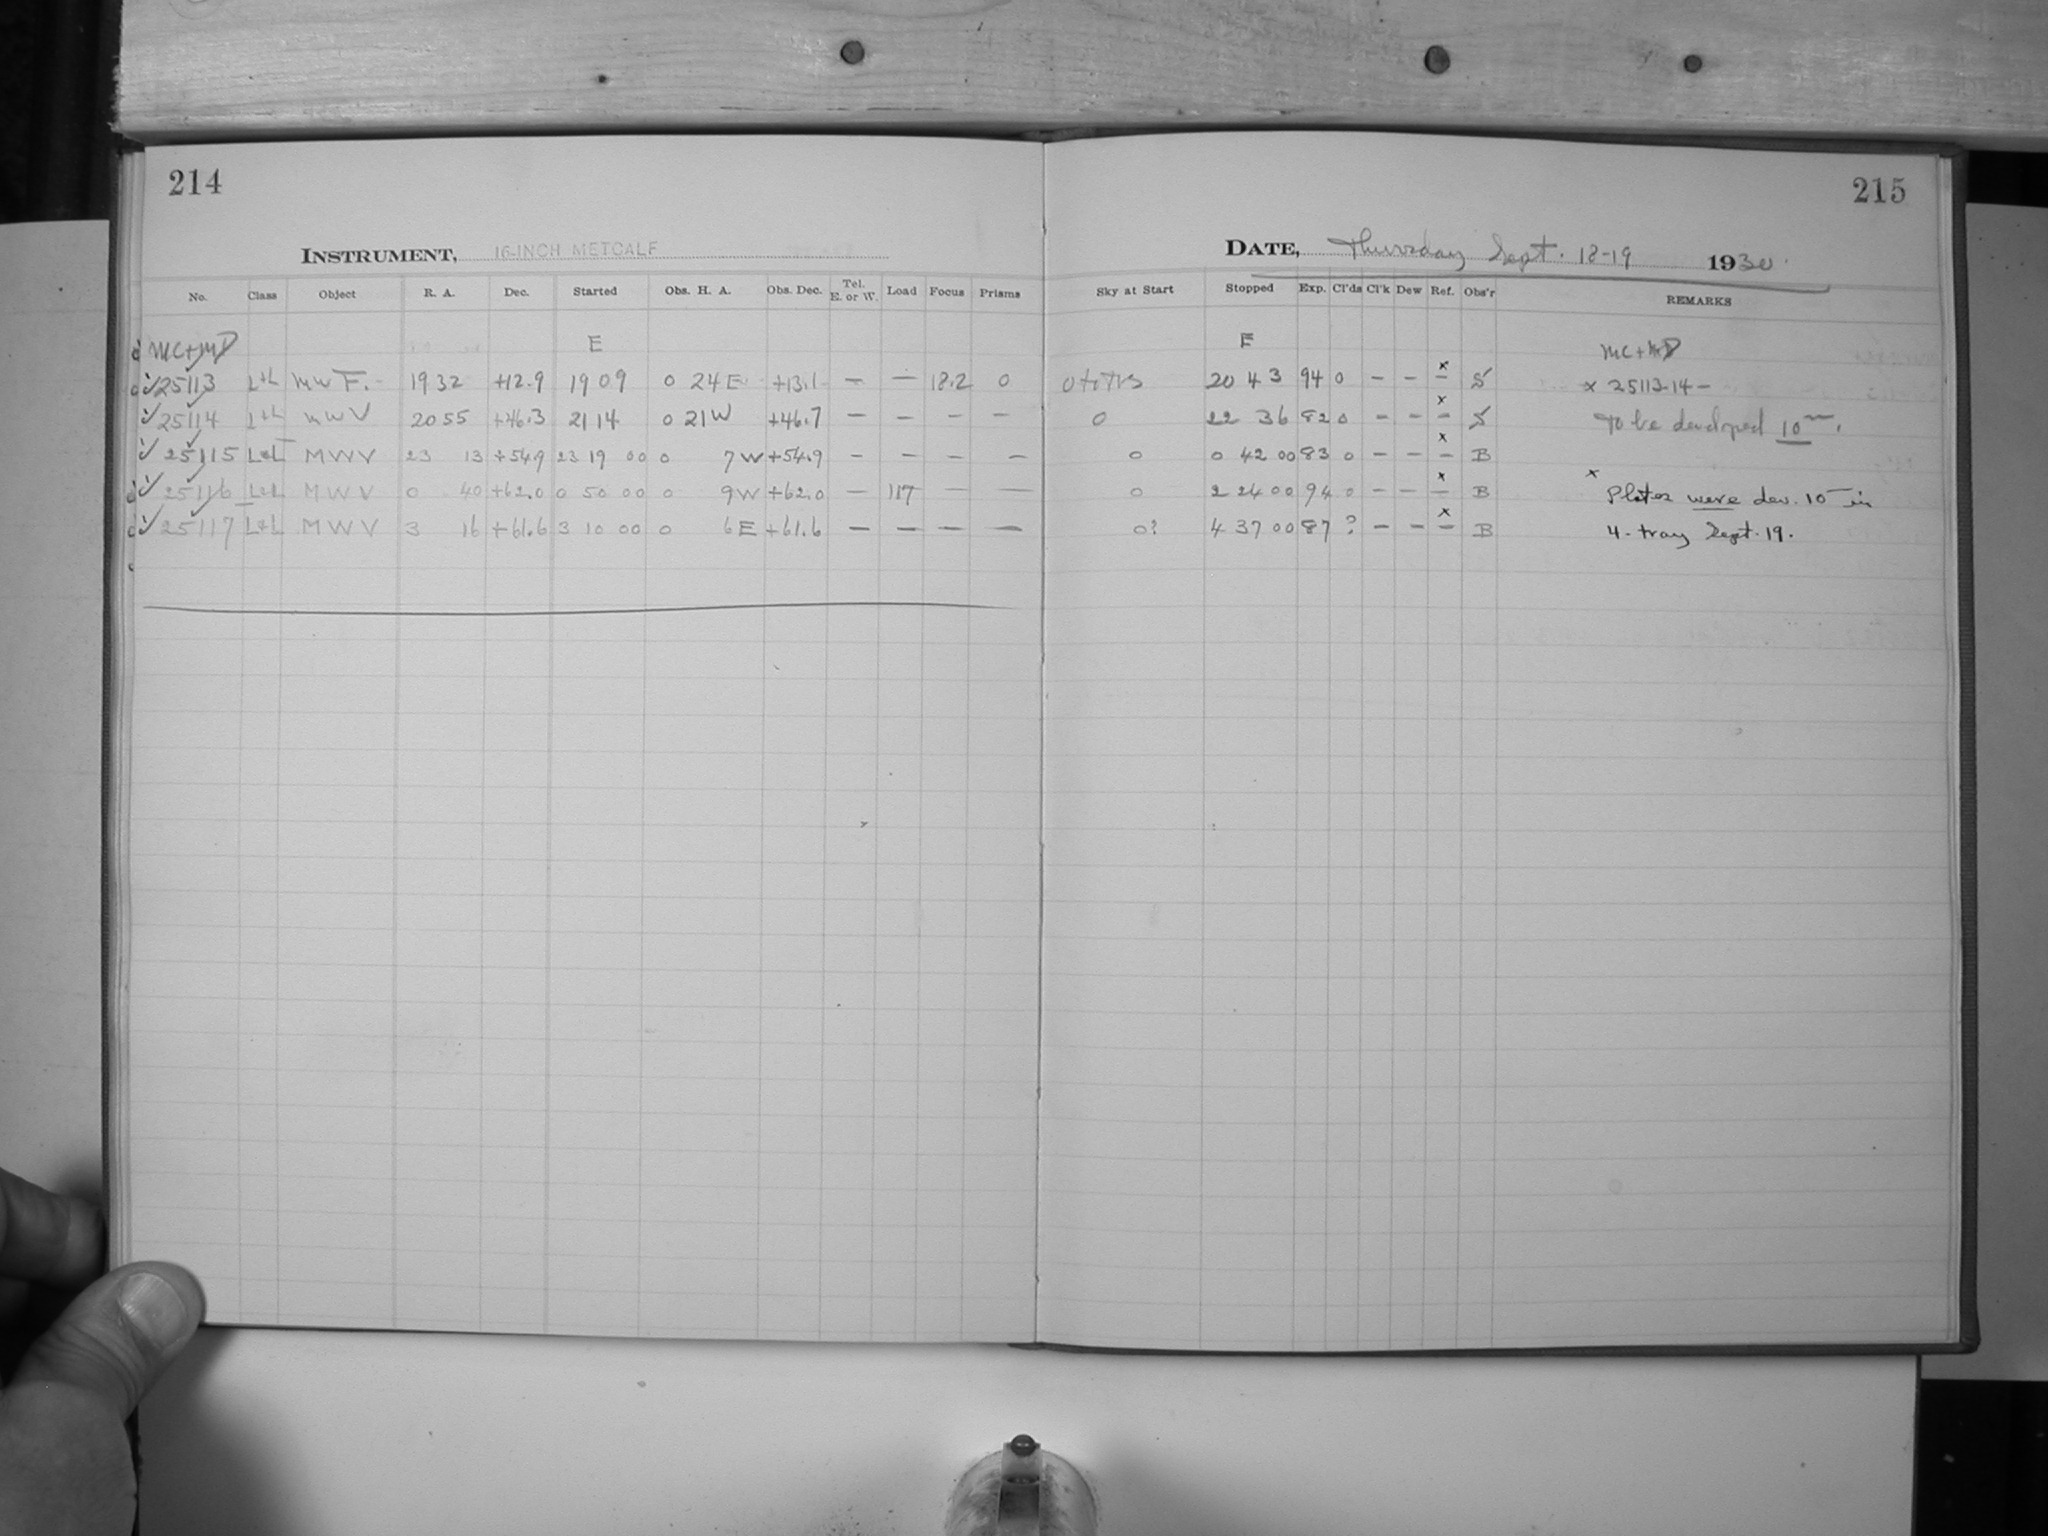 214
INSTRUMENT, 16-INCH METCALF
No. Class Object R. A. Dec. Started Obs. H. A. Obs. Dec. Tel. E. or W. Load Focus Prisms
MC+MD E
25113 L+L MWF. 19 32 +12.9 19 09 0 24E +13.1 — — 18.2 0
25114 L+L MWV 20 55 +46.3 21 14 0 21W +46.7 — — — —
25115 L+L MWV 23 13 +54.9 23 19 00 0 7W +54.9 — — — —
25116 L+L MWV 0 40 +62.0 0 50 00 0 9W +62.0 — 117 — —
25117 L+L MWV 3 16 +61.6 3 10 00 0 6E +61.6 — — — —
215
DATE, Thursday Sept. 18-19 1930.
Sky at Start Stopped Exp. Cl'ds Cl'k Dew Ref. Obs'r REMARKS
E MC+MD
20 43 94 0 — — x — S x 25113-14 —
0 22 36 82 0 — — x — S To be developed 10m.
0 0 42 00 83 0 — — x — B
0 2 24 00 94 0 — — x — B x Plates were dev. 10m in
0? 4 37 00 87 ? — — x — B 4-tray Sept. 19.